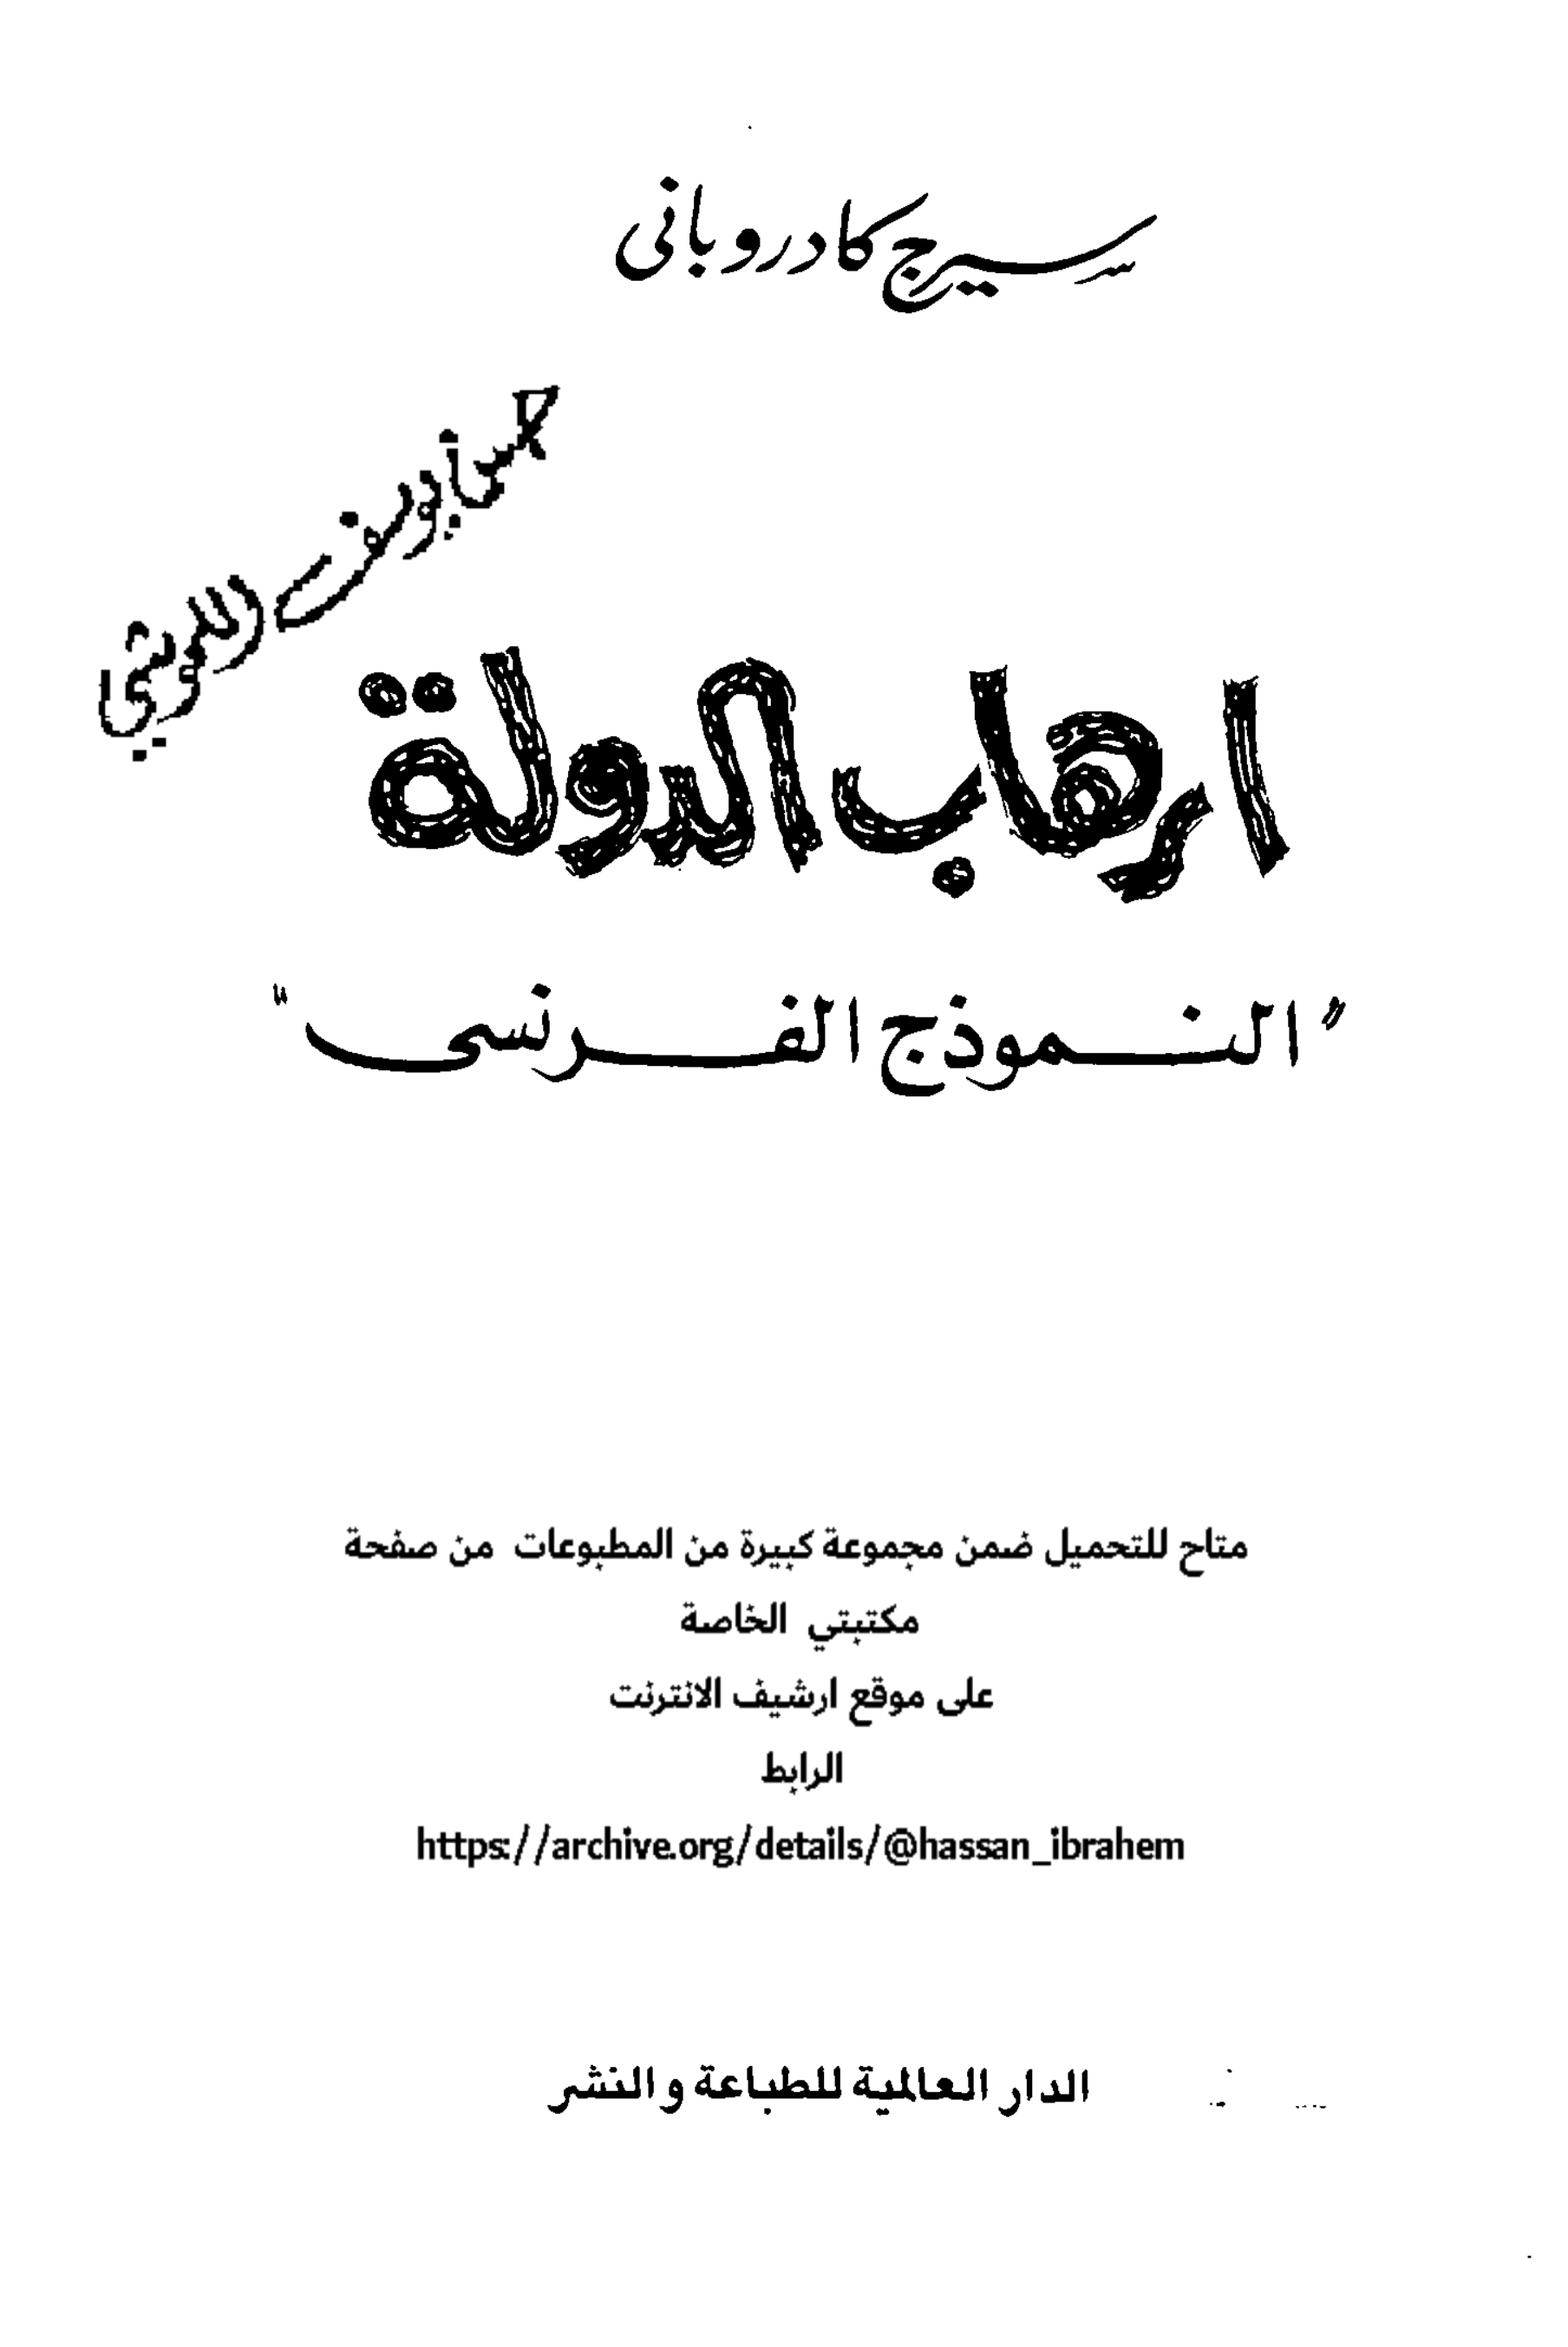 سيرج كادروباني
ارهاب الدولة
"النموذج الفرنسى"
متاح للتحميل ضمن مجموعة كبيرة من المطبوعات من صفحة
مكتبتي الخاصة
على موقع ارشيف الانترنت
الرابط
https://archive.org/details/@hassan_ibrahem
الدار العالمية للطباعة والنشر